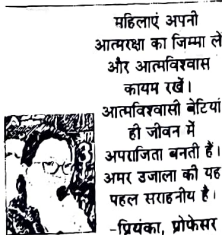 महिलाएं अपनी
आत्मरक्षा का जिम्मा लें
और आत्मविश्वास
कायम रखें।
आत्मविश्वासी बेटियां
ही जीवन में
अपराजिता बनती हैं।
अमर उजाला की यह
पहल सराहनीय है।
-प्रियंका, प्रोफेसर